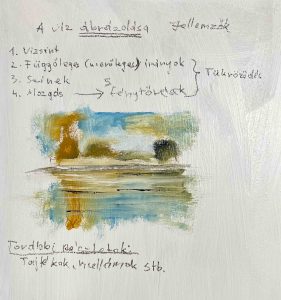 A víz ábrázolása Jellemzők
1. Vízszint
2. Függőleges (merőleges) irányok
3. Színek
4. Mozgás → fénytörések
Tükröződés
További részletek:
Tajtékok, hullámok stb.